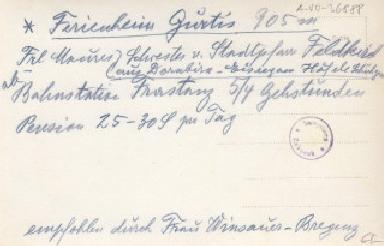 * Ferienheim Gurtis 905 m
Frl Maurer, Schwester v. Stadtpfarr Feldkirch
aus Dornbirn
Bahnstation Frastanz 5/4 Gehstunden
Pension 25-30 S pro Tag
empfohlen durch Frau Winsauer-Bregenz